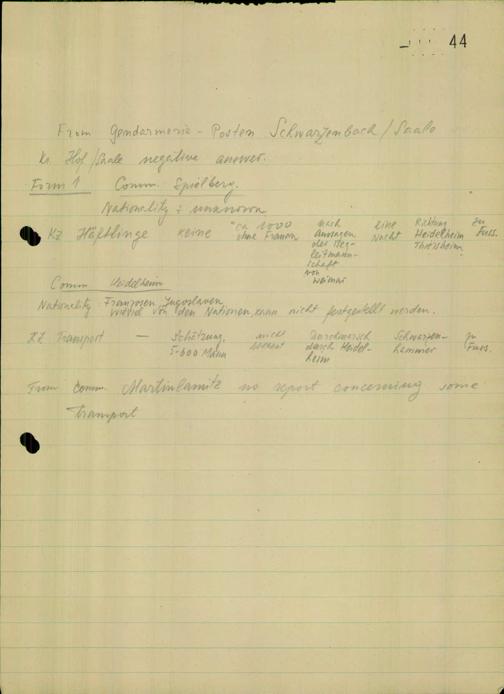 44
From Gendarmerie - Posten Schwarzenbach / Saale
Kr. Hof / Saale negative answer.
Form 1 Comm. Spielberg.
Nationality : unknown
KZ Häftlinge keine "ca 1000 ohne Frauen nach Aussagen der Begleitmannschaft von Weimar eine Nacht Richtung Heidelheim Thiersheim zu Fuss.
Comm Heidelheim
Nationality Franzosen, Jugoslaven,
wieviel von den Nationen, kann nicht festgestellt werden.
KZ Transport — Schätzung, 5-600 Mann nicht bekannt Durchmarsch durch Heidelheim Schwarzenhammer zu Fuss.
From Comm. Martinlamitz no report concerning some
transport